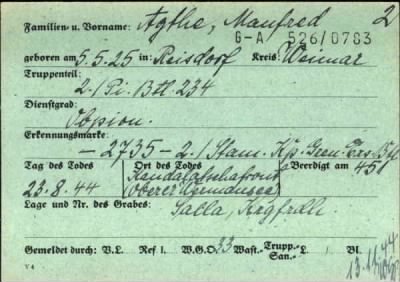 Familien- u. Vorname: Agthe, Manfred 2
G-A 526/0783
geboren am 5.5.25 in: Reisdorf Kreis: Weimar
Truppenteil:
2./Pi. Btl. 234
Dienstgrad:
Obpion.
Erkennungsmarke:
- 2735 - 2./Stam. Kp. Gren. Ers. Btl
Tag des Todes Ort des Todes Beerdigt am 451
23.8.44 Kandalakschafront
oberer Wermansee
Lage und Nr. des Grabes:
Salla, Krgfrdh.
Gemeldet durch: V.L. Ref I. W.G.O. 33 Wast.- Trupp.- San.- L. Bl.
V 4
13.11.44